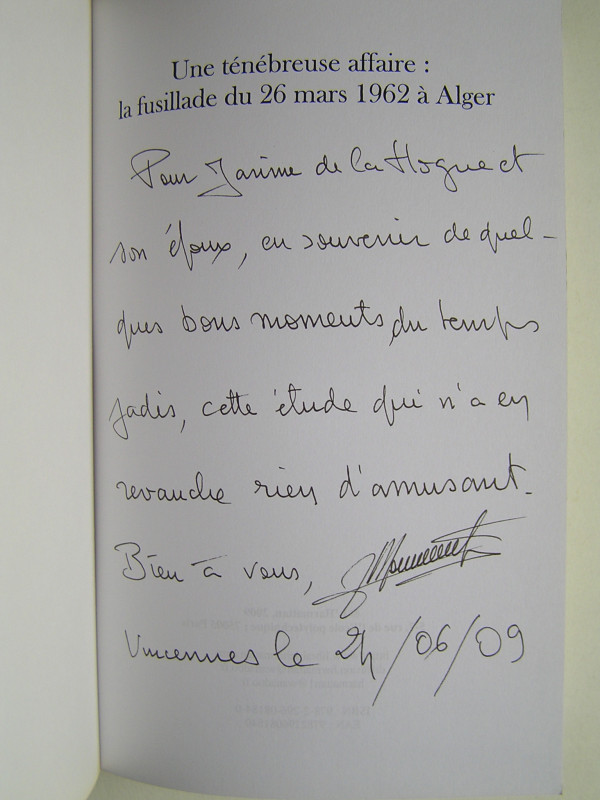 Une ténébreuse affaire :
la fusillade du 26 mars 1962 à Alger
Pour Janine de la Hogue et
son époux, en souvenir de quel-
ques bons moments du temps
jadis, cette étude qui n'a en
revanche rien d'amusant.
Bien à vous,
Vincennes le 24/06/09